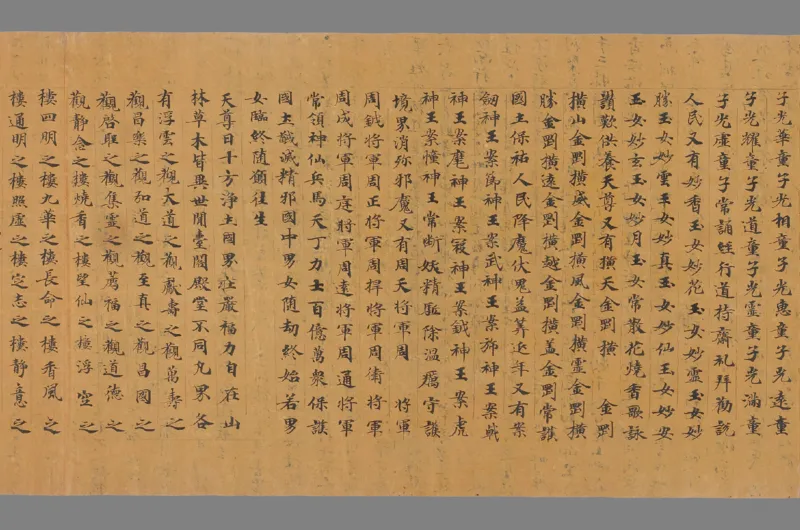 子光華童子光相童子光惠童子光遠童
子光耀童子光道童子光靈童子光滿童
子光虛童子常誦經行道持齋礼拜勸說
人民又有妙香玉女妙花玉女妙靈玉女妙
勝玉女妙雲玉女妙真玉女妙仙玉女妙安
玉女妙玄玉女妙月玉女常散花燒香歌詠
讃歎供養天尊又有橫天金剛橫 金剛
橫山金剛橫威金剛橫風金剛橫靈金剛橫
勝金剛橫遠金剛橫越金剛橫盖金剛常護
國主保祐人民降魔伏鬼益筭延年又有案
劒神王案節神王案武神王案 神王案戟
神王案麾神王案 神王案鉞神王案虎
神王案憧神王常斷妖精駈除温癘守護
境界消殄邪魔又有周天將軍周 將軍
周鉞將軍周正將軍周捍將軍周衛將軍
周成將軍周庭將軍周達將軍周通將軍
常領神仙兵馬天丁力士百億萬衆保護
國主 滅精邪國中男女随劫終始若男
女臨終随願徃生
天尊曰十方淨土國界莊嚴福力自在山
林草木皆異世間臺閣殿堂不同九界各
有浮雲之觀天道之觀獻壽之觀萬壽之
觀昌樂之觀加道之觀至真之觀昌國之
觀啓聖之觀集靈之觀薦福之觀道德之
觀静念之樓燒香之樓望仙之樓浮空之
樓四明之樓九華之樓長命之樓香風之
樓通明之樓照虛之樓定志之樓静意之